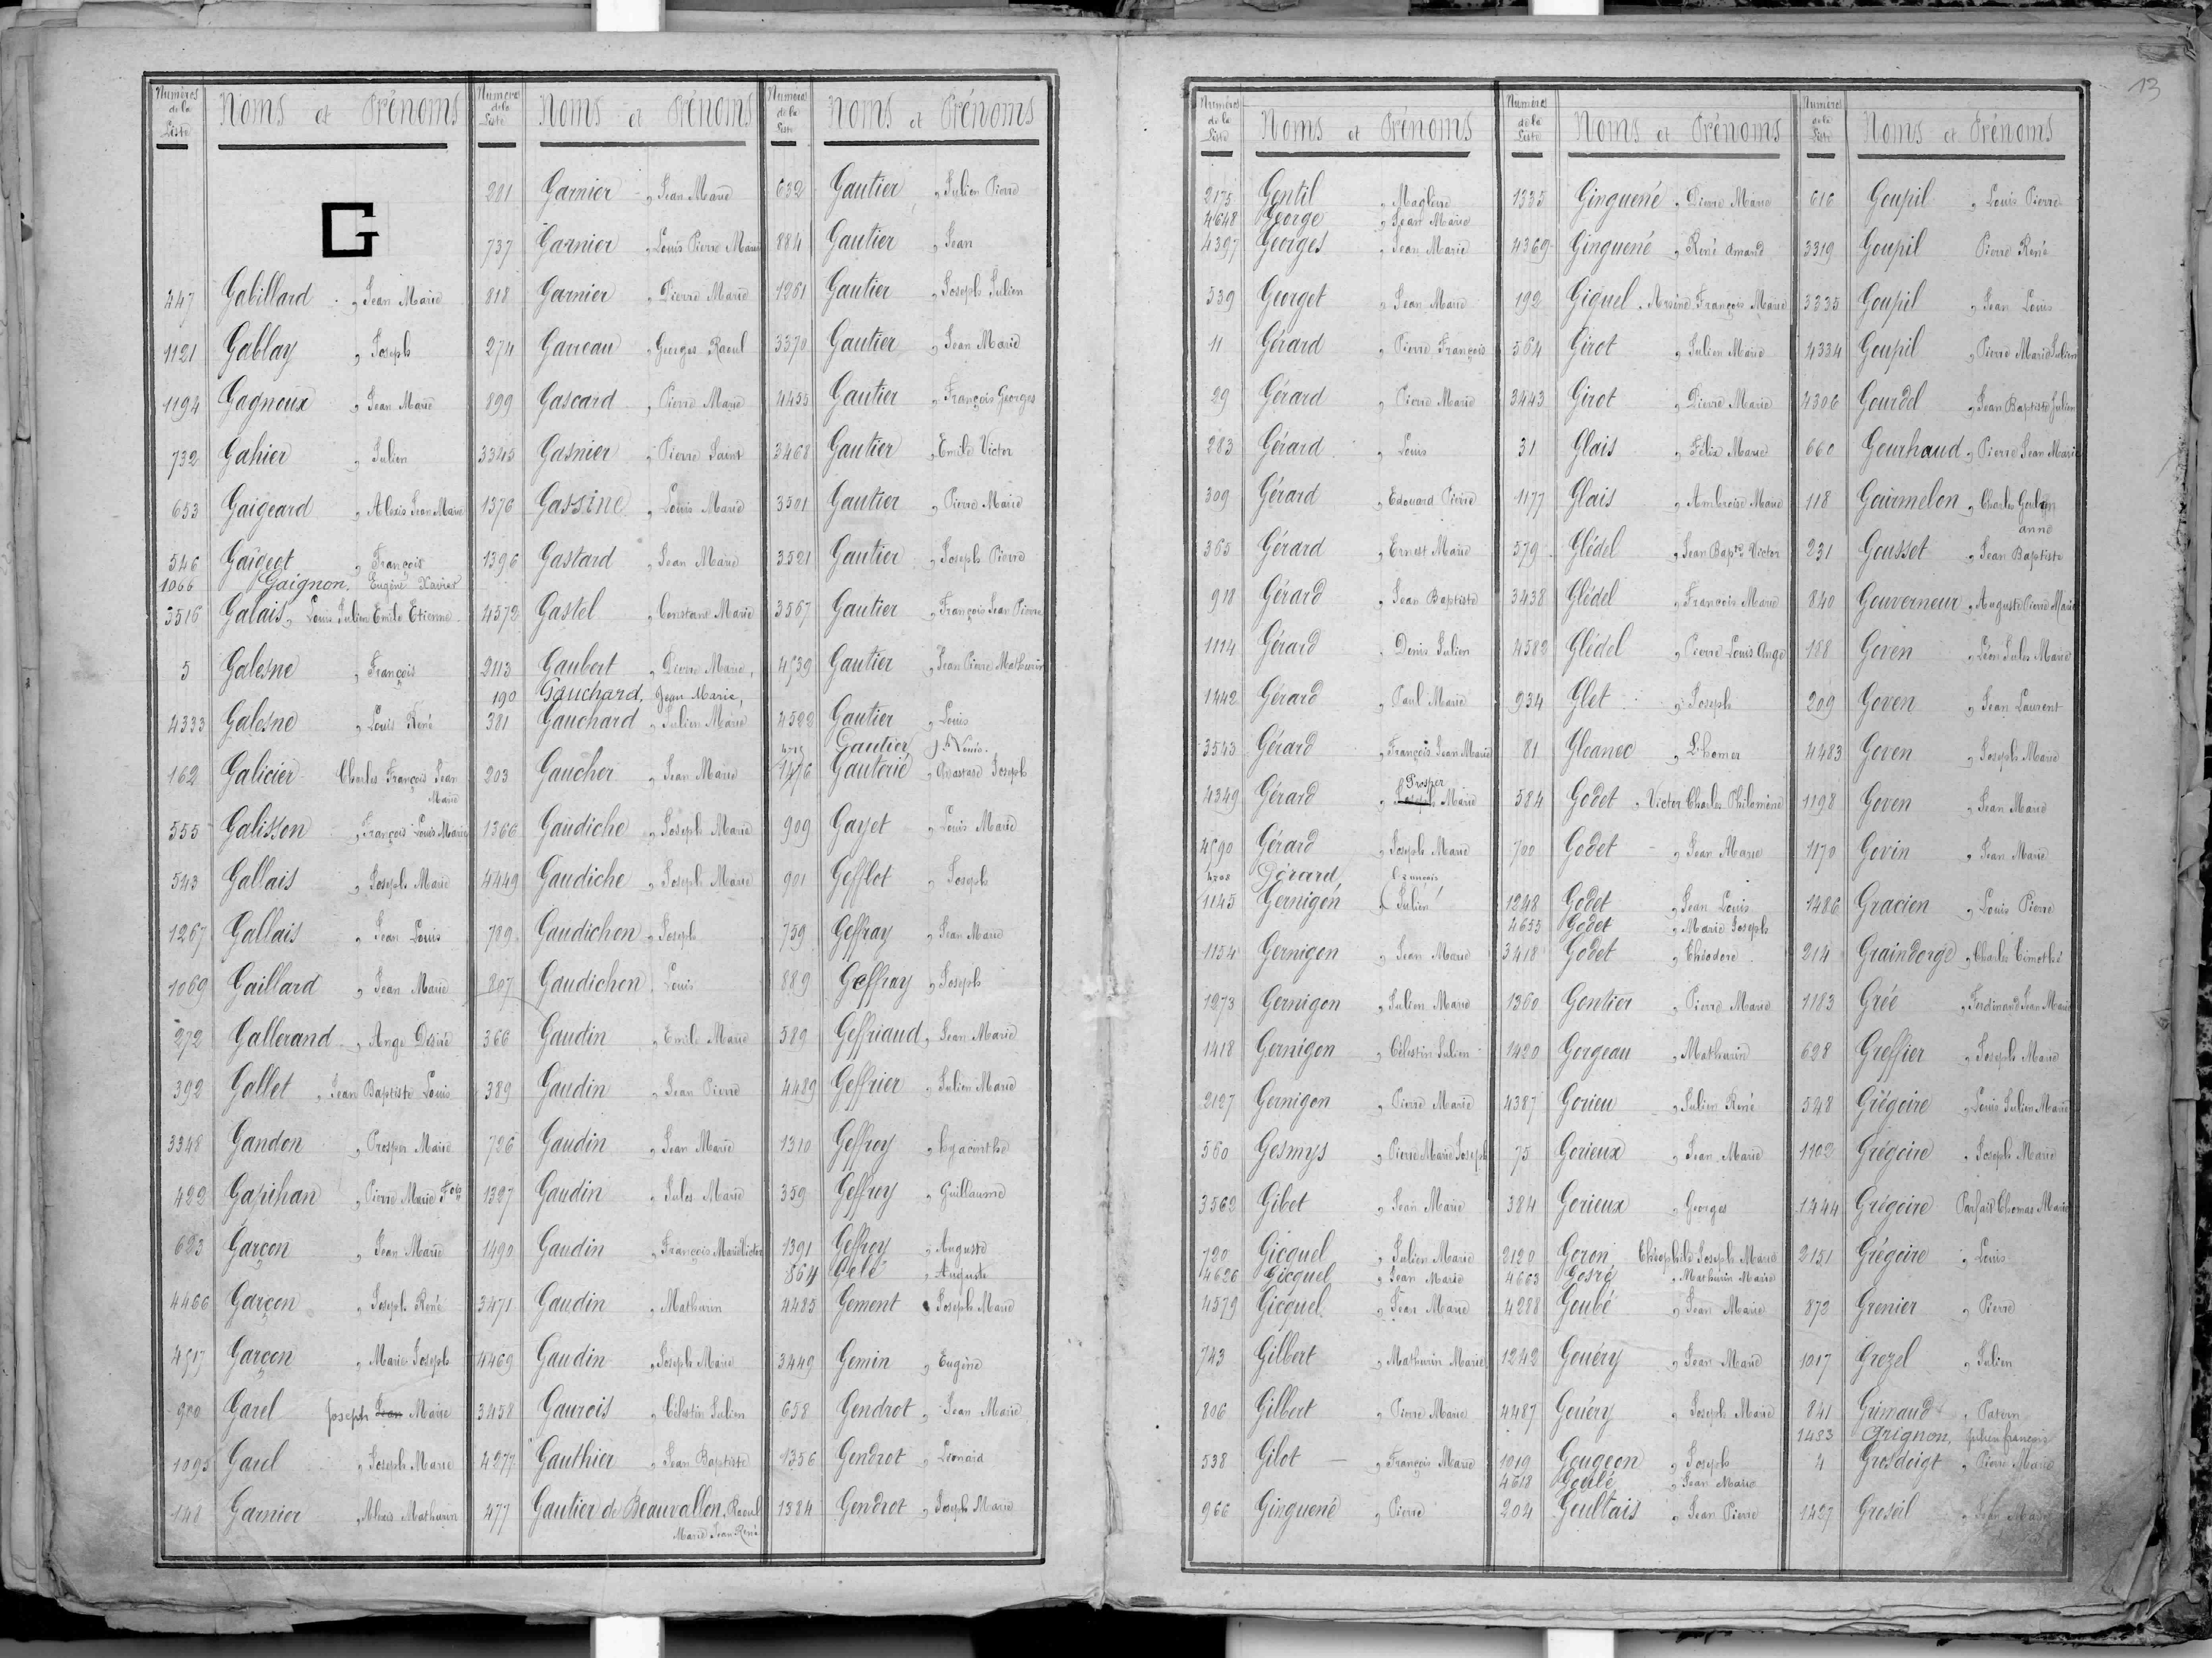 Numéros de la Liste Noms et Prénoms
G
447 Gabillard, Jean Marie
1121 Gablay, Joseph
1194 Gagneux, Jean Marie
732 Gahier, Julien
653 Gaigeard, Alexis Jean Marie
546 Gaigeot, François
1066 Gaignon, Eugène Xavier
3516 Galais, Louis Julien Emile Etienne
5 Galesne, François
4333 Galesne, Louis René
162 Galicier Charles François Jean
Marie
555 Galisson, François Louis Marie
543 Gallais, Joseph Marie
1267 Gallais, Jean Louis
1069 Gaillard, Jean Marie
272 Gallerand, Ange Désiré
392 Gallet, Jean Baptiste Louis
3348 Gandon, Prosper Marie
422 Gapihan, Pierre Marie
683 Garçon, Jean Marie
4466 Garçon, Joseph René
4517 Garçon, Marie Joseph
900 Garel Joseph Jean Marie
1095 Garel, Joseph Marie
148 Garnier, Alexis Mathurin
Numéros de la Liste Noms et Prénoms
201 Garnier, Jean Marie
737 Garnier, Louis Pierre Marie
818 Garnier, Pierre Marie
274 Garreau, Georges Raoul
899 Gascard, Pierre Marie
3345 Gasnier, Pierre Saint
1376 Gassine, Louis Marie
1396 Gastard, Jean Marie
4572 Gastel, Constant Marie
2113 Gaubert, Pierre Marie,
190 Gauchard, Jean Marie,
381 Gauchard, Julien Marie
203 Gaucher, Jean Marie
1366 Gaudiche, Joseph Marie
4449 Gaudiche, Joseph Marie
789 Gaudichon, Joseph
807 Gaudichon, Louis
366 Gaudin, Emile Marie
389 Gaudin, Jean Pierre
726 Gaudin, Jean Marie
1327 Gaudin, Jules Marie
1490 Gaudin, François Marie Victor
3471 Gaudin, Mathurin
4469 Gaudin, Joseph Marie
3458 Gaurois, Célestin Julien
4277 Gauthier, Jean Baptiste
477 Gautier de Beauvallon, Raoul
Marie Jean René
Numéros de la Liste Noms et Prénoms
632 Gautier, Julien Pierre
884 Gautier, Jean
1261 Gautier, Joseph Julien
3370 Gautier, Jean Marie
4455 Gautier, François Georges
3468 Gautier, Emile Victor
3501 Gautier, Pierre Marie
3521 Gautier, Joseph Pierre
3567 Gautier, François Jean Pierre
4539 Gautier, Jean Pierre Mathurin
4522 Gautier, Louis
Gautier Louis.
1476 Gauterié, Joseph
909 Gayet, Louis Marie
901 Gefflot, Joseph
759 Geffray, Jean Marie
889 Geffray, Joseph
589 Geffriaud, Jean Marie
4489 Geffrier, Julien Marie
1310 Geffroy, hyacinthe
359 Geffroy, Guillaume
1391 Geffroy, Auguste
564 Gelé, Auguste
4485 Gement, Joseph Marie
3449 Gemin, Eugène
658 Gendrot, Jean Marie
1356 Gendrot, Léonard
1384 Gendrot, Joseph Marie
13
Numéros de la Liste Noms et Prénoms
2175 Gentil, Magloire
4648 George, Jean Marie
4397 Georges, Jean Marie
539 Georget, Jean Marie
11 Gérard, Pierre François
29 Gérard, Pierre Marie
283 Gérard, Louis
309 Gérard, Edouard Pierre
365 Gérard, Ernest Marie
918 Gérard, Jean Baptiste
1114 Gérard, Denis Julien
1442 Gérard, Paul Marie
3543 Gérard, François Jean Marie
Prosper
4349 Gérard, Joseph Marie
4590 Gérard, Joseph Marie
4708 Gérard, François
1145 Gernigon, Julien
1154 Gernigon, Jean Marie
1973 Gernigon, Julien Marie
1418 Gernigon, Célestin Julien
2127 Gernigon, Pierre Marie
560 Gesmys, Pierre Marie Joseph
3562 Gibet, Jean Marie
720 Gicquel, Julien Marie
4626 Gicquel, Jean Marie
4579 Gicquel, Jean Marie
743 Gilbert, Mathurin Marie
806 Gilbert, Pierre Marie
538 Gilot, François Marie
966 Ginguené, Pierre
Numéros de la Liste Noms et Prénoms
1335 Ginguené, Pierre Marie
4369 Ginguené, René Amand
192 Giquel, Arsène François Marie
564 Girot, Julien Marie
3443 Girot, Pierre Marie
31 Glais, Félix Marie
1177 Glais, Ambroise Marie
579 Glédel, Jean Bapte Victor
3438 Glédel, François Marie
4582 Glédel, Pierre Louis Ange
934 Glet, Joseph
81 Gloanec, Lhomer
584 Godet, Victor Charles Philomène
700 Godet, Jean Marie
1248 Godet, Jean Louis
4655 Godet, Marie Joseph
3418 Godet, Théodore
1360 Gontier, Pierre Marie
1420 Gorgeau, Mathurin
4387 Gorieu, Julien René
75 Gorieux, Jean Marie
384 Gorieux, Georges
2120 Goron Théophile Joseph Marie
4663 Gosré, Mathurin Marie
4288 Goubé, Jean Marie
1242 Gouéry, Jean Marie
4487 Gouéry, Joseph Marie
1019 Gougeon, Joseph
4618 Goulé, Jean Marie
204 Goultais, Jean Pierre
Numéros de la Liste Noms et Prénoms
616 Goupil, Louis Pierre
3319 Goupil Pierre René
3335 Goupil, Jean Louis
4334 Goupil, Pierre Marie Julien
4306 Gourdel, Jean Baptiste Julien
660 Gourhaud, Pierre Jean Marie
118 Gourmelon, Charles
anne
231 Gousset, Jean Baptiste
840 Gouverneur, Auguste Pierre Marie
188 Goven, Léon Jules Marie
209 Goven, Jean Laurent
4483 Goven, Joseph Marie
1198 Goven, Jean Marie
1170 Govin, Jean Marie
1486 Gracien, Louis Pierre
214 Graindorge, Charles Timothée
1183 Grée, Ferdinand Jean Marie
628 Greffier, Joseph Marie
548 Grégoire, Louis Julien Marie
1102 Grégoire, Joseph Marie
1444 Grégoire Parfait Thomas Marie
2151 Grégoire, Louis
872 Grenier, Pierre
1017 Grezel, Julien
841 Grimaud,
1483 Grignon, Julien françois
4 Grosdoigt, Pierre Marie
1427 Groseil, Jean Marie